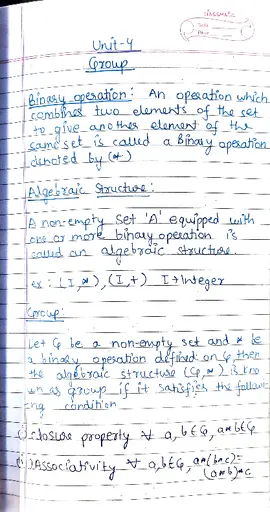 classmate
Date
Page
Unit-4
Group
Binary operation: An operation which
combines two elements of the set
to give another element of the
same set is called a Binary operation
denoted by (*)
Algebraic Structure:
A non-empty set 'A' equipped with
one or more binary operation is
called an algebraic structure.
ex: (I, *), (I, +) I → Integer
Group:
Let G be a non-empty set and * be
a binary operation defined on G, then
the algebraic structure (G, *) is kno
wn as group if it satisfies the followi
ng condition
closure property ∀ a, b ∈ G, a*b ∈ G
Associativity ∀ a, b ∈ G, a*(b*c) =
(a*b)*c